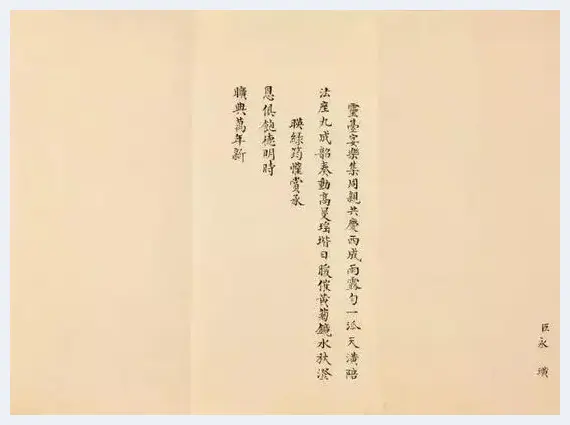 臣永璜
靈臺宴樂集周親共慶西成雨露勻一派天潢陪
法座九成韶奏動高旻瑶堦日暖催黃菊鏡水秋深
映綠筠懽賞承
恩俱飽德明時
曠典萬年新